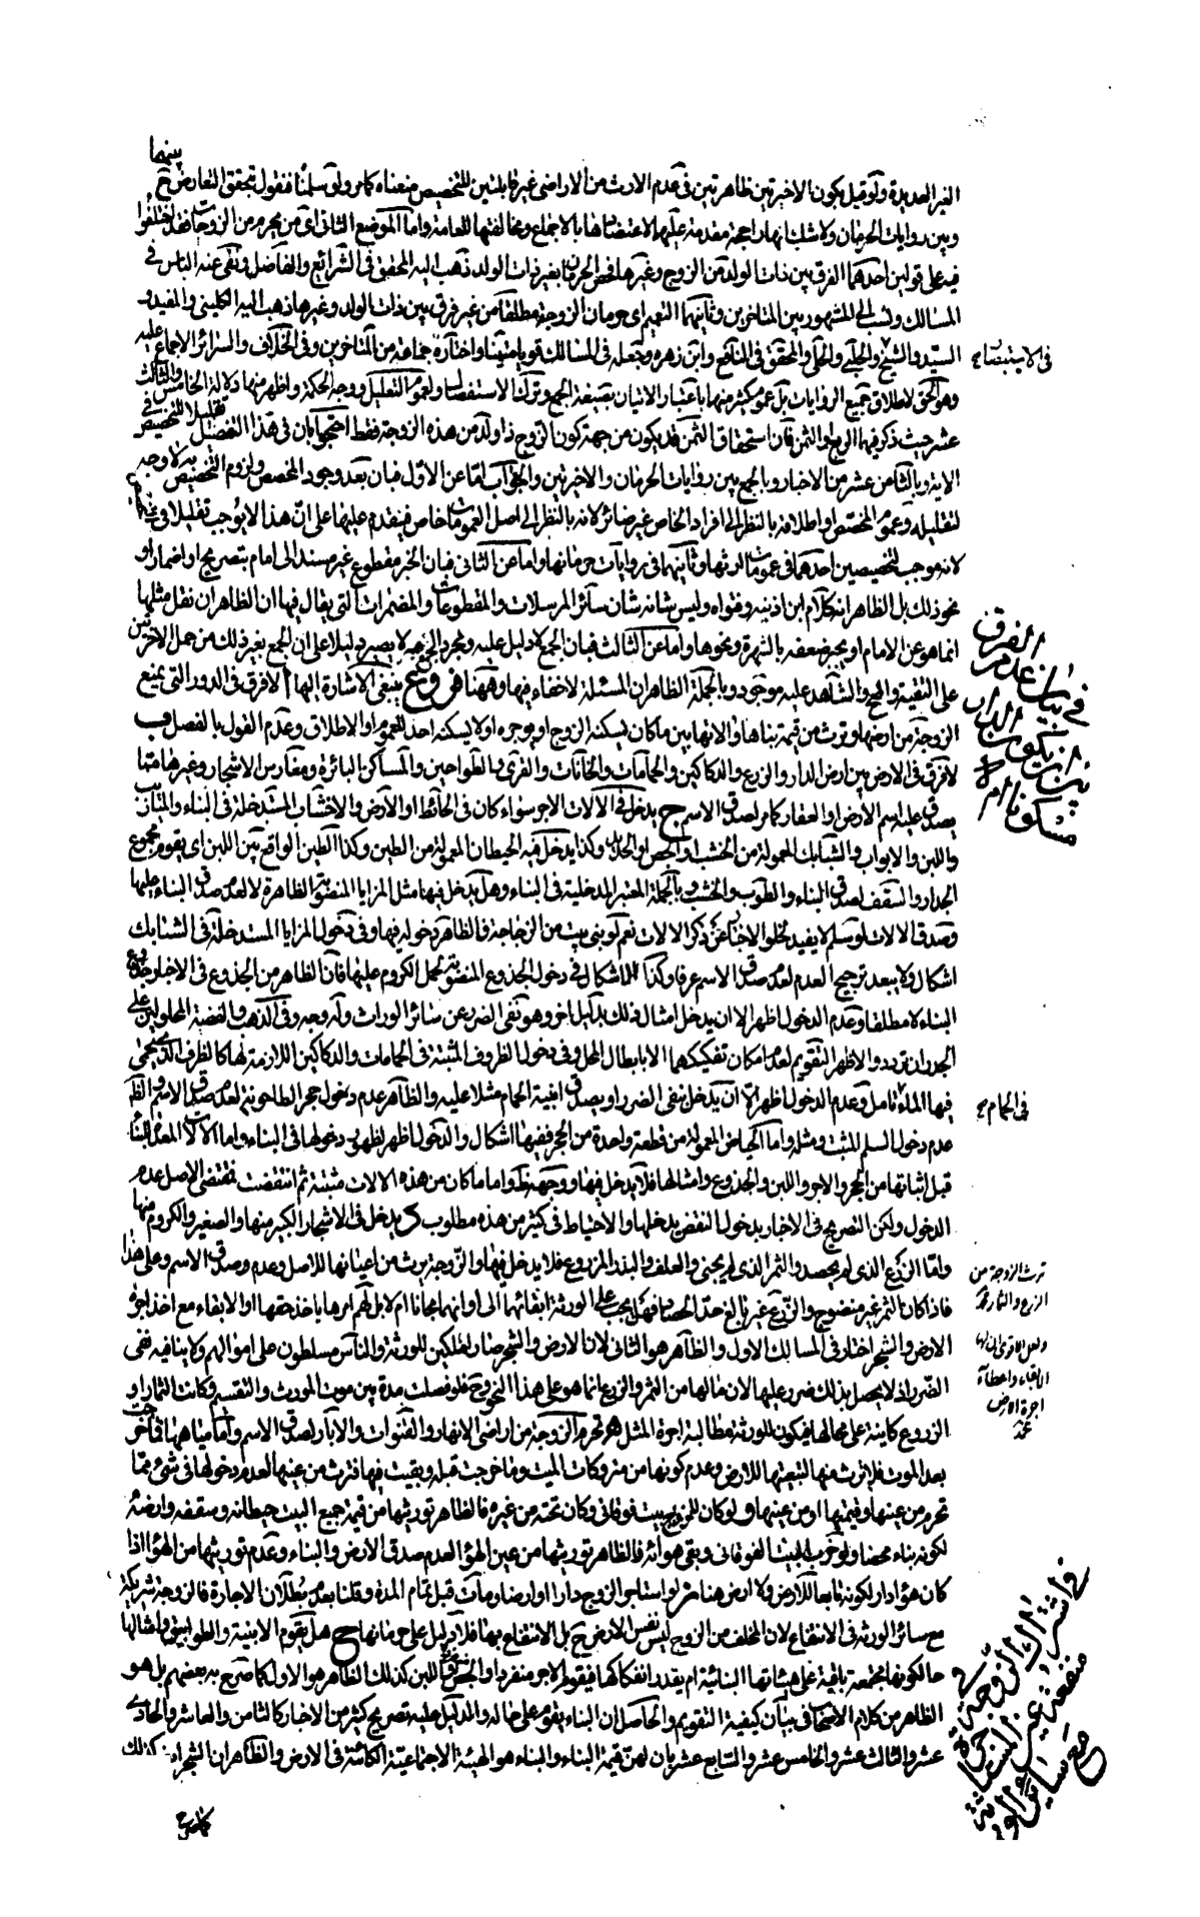 بينهما
الغير العديدة ولو قيل بكون الاخيرتين ظاهرتين في عدم الارث من الاراضي غير قابلتين للتخصيص منعناه كما مر ولو سلمنا فنقول تحقق التعارض ح
وبين روايات الحرمان ولا شك انها راجحة مقدمة عليهما لاعتضادها بالاجماع ومخالفتها للعامة واما الموضع الثاني اي من يحرم من الزوجات فقد اختلفوا
فيه على قولين احدهما الفرق بين ذات الولد من الزوج وغيرها فخص الحرمان بغير ذات الولد ذهب اليه المحقق في الشرائع والفاضل ونفى عنه الباس في
المسالك ونسب الى المشهور بين المتاخرين وثانيهما التعميم اي حرمان الزوجة مطلقا من غير فرق بين ذات الولد وغيرها ذهب اليه الكليني والمفيد و
السيد والشيخ والحلبي والحلي والمحقق في النافع وابن زهرة وجعله في المسالك قويا متينا واختاره جماعة من المتاخرين وفي الخلاف والسرائر الاجماع عليه
في الاستبصار
وهو الحق لاطلاق جميع الروايات بل عموم كثير منها باعتبار الاتيان بصيغة الجمع وترك الاستفصال ولعموم التعليل ووجه الحكمة واظهر منها دلالة الخامس والثالث
عشر حيث ذكر فيهما الربع والثمن فان استحقاق الثمن قد يكون من جهة كون الزوج ذا ولد من هذه الزوجة فقط احتجوا بان في هذا التفصيل تقليلا للتخصيص في
الاية وبالثامن عشر من الاخبار وبالجمع بين روايات الحرمان والاخيرتين والجواب اما عن الاول فبان بعد وجود المخصص ولزوم التخصيص به لا وجه
لتقليله وعموم المخصص او اطلاقه بالنظر الى افراد الخاص غير ضائر لانه بالنظر الى اصل العمومات خاص فيقدم عليها على ان هذا لا يوجب تقليلا
لانه موجب لتخصيصين احدهما في عمومات ارثها وثانيهما في روايات حرمانها واما عن الثاني فبان الخبر مقطوع غير مسند الى امام بتصريح او اضمار او
نحو ذلك بل الظاهر انه كلام ابن اذينه وفتواه وليس شانه شان سائر المرسلات والمقطوعات والمضمرات التي يقال فيها ان الظاهر ان نقل مثلها
انما هو عن الامام او يجبر ضعفه بالشهرة ونحوها واما عن الثالث فبان الجمع لا دليل عليه ومجرد الخروج لا يصير دليلا على ان الجمع بغير ذلك من حمل الاخيرتين
على التقية والشاهد عليه موجود وبالجملة الظاهر ان المسئلة لا خفاء فيها وههنا فروع ينبغي الاشارة اليها لا فرق في الدور التي يمنع
الزوجة من ارضها وترث من قيمة بنائها والاتها بين ما كان يسكنه الزوج او يوجره او لا يسكنه احد للعموم او الاطلاق وعدم القول بالفصل ب
في بيان عدم الفرق بين ان يكون الدار مسكونا ام لا
لا فرق في الارض بين ارض الدار والزرع والدكاكين والحمامات والخانات والقرى والطواحين والمساكن البائرة ومغارس الاشجار وغيرها مما
يصدق عليه اسم الارض او العقار كما مر لصدق الاسم ج يدخل في الالات الاجر سواء كان في الحائط او الارض والاخشاب المستدخلة في البناء
واللبن والابواب والشبابيك المعمولة من الخشب او الجص او الحديد وكذا يدخل فيه الحيطان المعمولة من الطين وكذا الطين الواقع بين اللبن اي يقوم مجموع
الجدار والسقف لصدق البناء والطوب والخشب وبالجملة المعتبر المدخلية في البناء وهل يدخل فيها مثل المرايا المنصوبة الظاهر لا لعدم صدق البناء عليها
وصدق الالات لو سلم لا يفيد لخلو الاخبار عن ذكر الالات نعم لو بني بيت من الزجاجة فالظاهر دخوله فيها وفي دخول المرايا المستدخلة في الشبابيك
اشكال ولا يبعد ترجيح العدم لعدم صدق الاسم عرفا وكذا الاشكال في دخول الجذوع المنصوبة لحمل الكروم عليها فان الظاهر من الجذوع في الاخبار جذوع
البناء لا مطلقا وعدم الدخول اظهر الا ان يدخل امثال ذلك بدليل اخر وهو نفي الضرر عن سائر الوراث وله وجه وفي الذهب والفضة المحلولين على
الجدران تردد والاظهر التقويم لعدم امكان تفكيكهما الا بابطال المحل وفي دخول الظروف المثبتة في الحمامات والدكاكين اللازمة لها كالظرف الذي يحمى
فيها الماء تامل وعدم الدخول اظهر الا ان يدخل بنفي الضرر او يصدق ابنية الحمام مثلا عليه والظاهر عدم دخول حجر الطاحونة لعدم صدق الاسم
في الحمام
عدم دخول السلم المثبت ومثله واما الحياض المعمولة من قطعة واحدة من الحجر ففيها اشكال والدخول اظهر لظهور دخولها في البناء واما الالات المعدة للبناء
قبل اثباتها من الحجر والاجر واللبن والجذوع وامثالها فلا يدخل فيها ووجهه ظ واما ما كان من هذه الالات مثبتة ثم انتقضت فمقتضى الاصل عدم
الدخول ولكن التصريح في الاخبار بدخول النقض يدخلها والاحتياط في كثير من هذه مطلوب د يدخل في الاشجار الكبير منها والصغير والكروم منها
واما الزرع الذي لم يحصد والثمر الذي لم يجنى والعلف والبذر المزروع فلا يدخل فيها والزوجة يرث من اعيانها للاصل وعدم صدق الاسم وعلى هذا
ترث الزوجة من الزرع والثمار
فاذا كان الثمر غير منضوج والزرع غير بالغ حد الحصاد فهل يجب على الورثة ابقائهما الى اوانهما مجانا ام لا بل لهم امرها باخذ حقها او الابقاء مع اخذ اجرة
الارض والشجر اختار في المسالك الاول والظاهر هو الثاني لان الارض والشجر صارا ملكين للورثة والناس مسلطون على اموالهم ولا ينافيه نفي
ولعل الاقوى الابقاء واعطاء اجرة الارض
الضرر اذ لا يحصل بذلك ضرر عليها لان مالها من الثمر والزرع انما هو على هذا النحو ح فلو فصلت مدة بين موت المورث والتقسيم وكانت الثمار او
الزروع كاينة على محالها فيكون للورثة مطالبة اجرة المثل هـ تحرم الزوجة من اراضي الانهار والقنوات والابار لصدق الاسم واما مياهها فما خرجت
بعد الموت فلا ترث منها لتبعيتها للارض وعدم كونها من متروكات الميت وما خرجت قبله وبقيت فيها فترث من عينها لعدم دخولها في شيء مما
تحرم من عينها وقيمتها او من عينها و لو كان للزوج بيت فوقاني وكان تحته من غيره فالظاهر توريثها من قيمة جميع البيت حيطانه وسقفه وارضه
لكونه بناء محضا ولو خرب البيت الفوقاني وبقي هوائه فالظاهر توريثها من عين الهواء لعدم صدق الارض والبناء وعدم توريثها من الهواء اذا
كان هواء دار لكونه تابعا للارض ولا ارض هنا ز لو استاجر الزوج دارا او ارضا ومات قبل تمام المدة وقلنا بعدم بطلان الاجارة فالزوجة شريكة
في اشتراك الزوجة في منفعة عين المستاجرة مع سائر الورثة
مع سائر الورثة في الانتفاع لان المخلف من الزوج ليس نفس الارض ح بل الانتفاع بها فلا دليل على حرمانها ح هل يقوم الابنية والطوابيق وامثالها
حال كونها مجتمعة باقية على هيئاتها البنائية ام يقدر انفكاكها فيقوم الاجر منفردا والجص واللبن كذلك الظاهر هو الاول كما صرح به بعضهم بل هو
الظاهر من كلام الاصحاب في بيان كيفية التقويم والحاصل ان البناء يقوم على حاله والدليل عليه تصريح كثير من الاخبار كالثامن والعاشر والحادي
عشر والثالث عشر والخامس عشر والسابع عشر بان لهن قيمة البناء والبناء هو الهيئة الاجتماعية الكائنة في الارض والظاهر ان الشجر كذلك